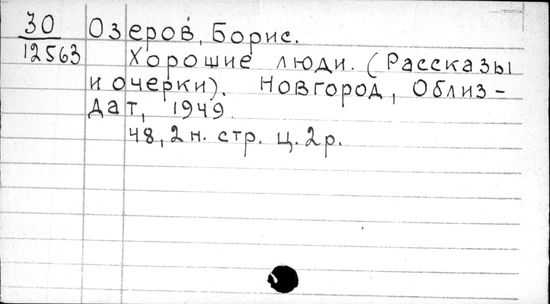 30
12563
Озеров, Борис.
Хорошие люди. (Рассказы
и очерки). Новгород, Облиз-
дат, 1949.
48, 2 н. стр. ц. 2 р.